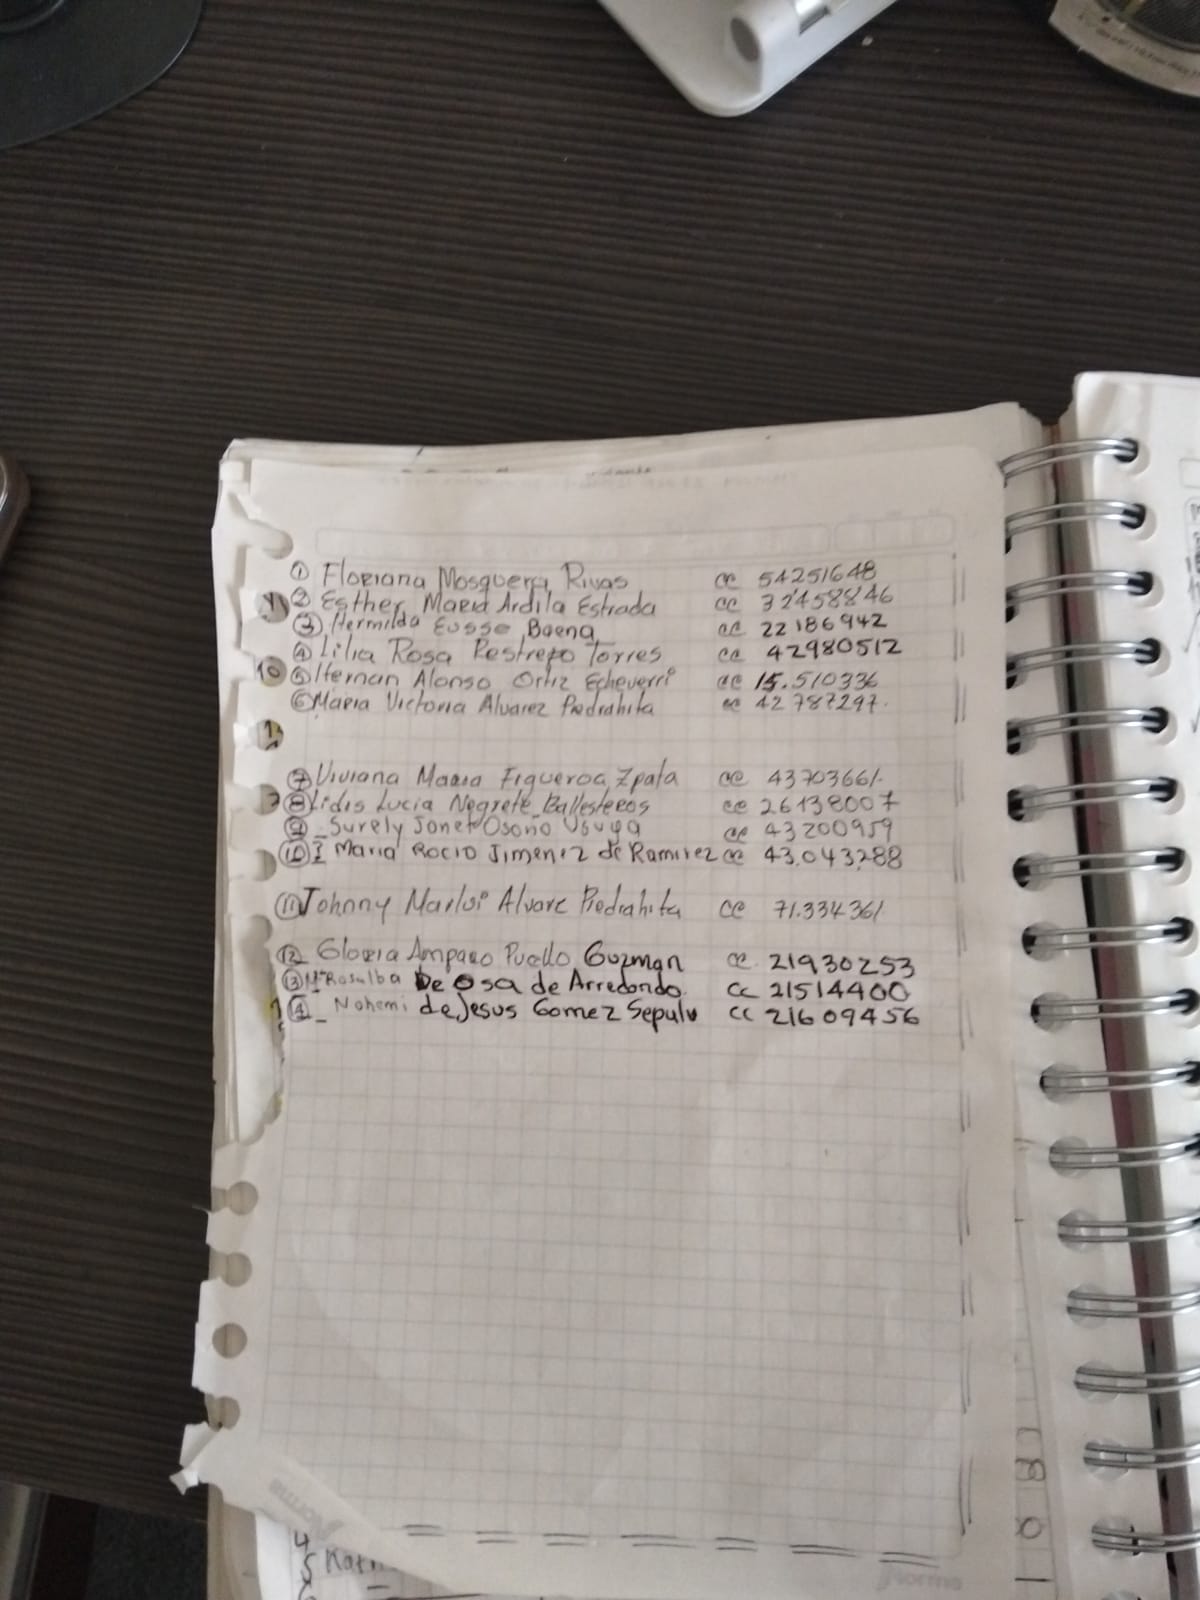 ① Floriana Mosquera Rivas cc 54251648
② Esther Maria Ardila Estrada cc 32458846
③ Hermilda Eusse Baena cc 22186942
④ Lilia Rosa Restrepo Torres cc 42980512
⑤ Hernan Alonso Ortiz Echeverri cc 15.510336
⑥ Maria Victoria Alvarez Piedrahita cc 42787297.
⑦ Viviana Maria Figueroa Zpata cc 43703661.
⑧ Lidis Lucia Negrete Ballesteros cc 26138007
⑨ Surely Janet Osorio Usuga cc 43200959
⑩ Maria Rocio Jimenez de Ramirez cc 43.043.288
⑪ Johnny Marlui Alvare Piedrahita cc 71.334361
⑫ Gloria Amparo Puello Guzman cc. 21930253
⑬ Mª Rosalba De Osa de Arredondo. cc 21514400
⑭ Nohemi de Jesus Gomez Sepulv cc 21609456
10
norma
norma